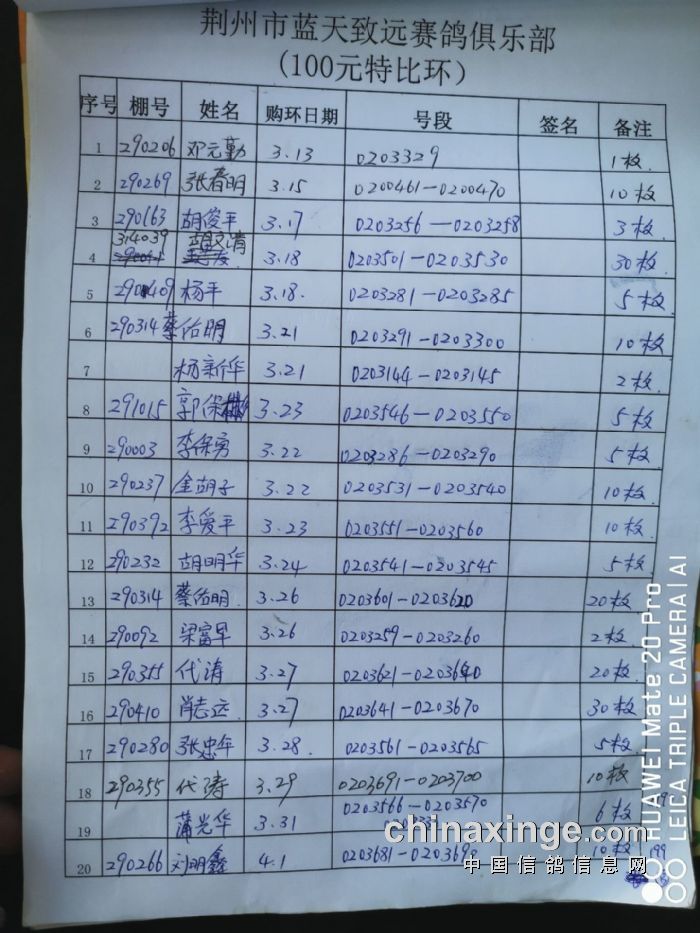 荆州市蓝天致远赛鸽俱乐部
(100元特比环)
序号 棚号 姓名 购环日期 号段 签名 备注
1 290206 邓元勤 3.13 0203329 1枚
2 290269 张春明 3.15 0200461—0200470 10枚
3 290163 胡俊平 3.17 0203256—0203258 3枚
4 314039 胡文清 3.18 0203501—0203530 30枚
5 290409 杨平 3.18. 0203281—0203285 5枚
6 290314 蔡佑明 3.21 0203291—0203300 10枚
7 杨新华 3.21 0203144—0203145 2枚
8 291015 郭保 3.23 0203546—0203550 5枚
9 290003 李保勇 3.22 0203286—0203290 5枚
10 290237 金胡子 3.22 0203531—0203540 10枚
11 290392 李爱平 3.23 0203551—0203560 10枚
12 290232 胡明华 3.24 0203541—0203545 5枚
13 290314 蔡佑明 3.26 0203601—0203620 20枚
14 290092 梁富早 3.26 0203259—0203260 2枚
15 290355 代涛 3.27 0203621—0203640 20枚
16 290410 肖志远 3.27 0203641—0203670 30枚
17 290280 张忠华 3.28. 0203561—0203565 5枚
18 290355 代涛 3.29 0203691—0203700 10枚
19 蒲光华 3.31 0203566—0203570 6枚
20 290266 刘明鑫 4.1 0203681—0203690 10枚 199
chinaxinge.com
中国信鸽信息网
HUAWEI Mate 20 Pro
LEICA TRIPLE CAMERA | AI